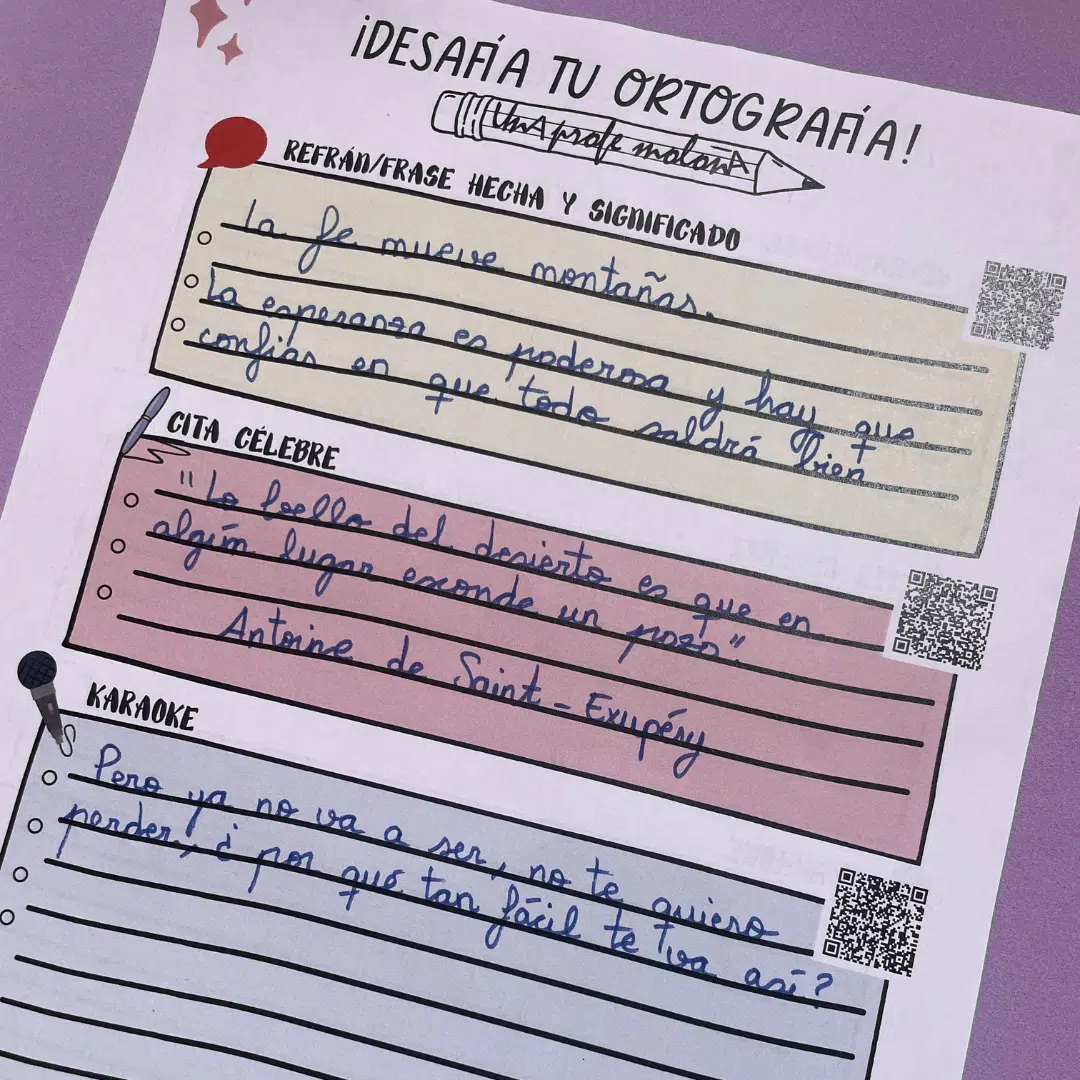 ¡DESAFÍA TU ORTOGRAFÍA!
UnA profe molonA
REFRÁN/FRASE HECHA Y SIGNIFICADO
La fe mueve montañas.
La esperanza es poderosa y hay que
confiar en que todo saldrá bien
CITA CÉLEBRE
"Lo bello del desierto es que en
algún lugar esconde un pozo"
Antoine de Saint-Exupéry
KARAOKE
Pero ya no va a ser, no te quiero
perder, ¿por qué tan fácil te va así?